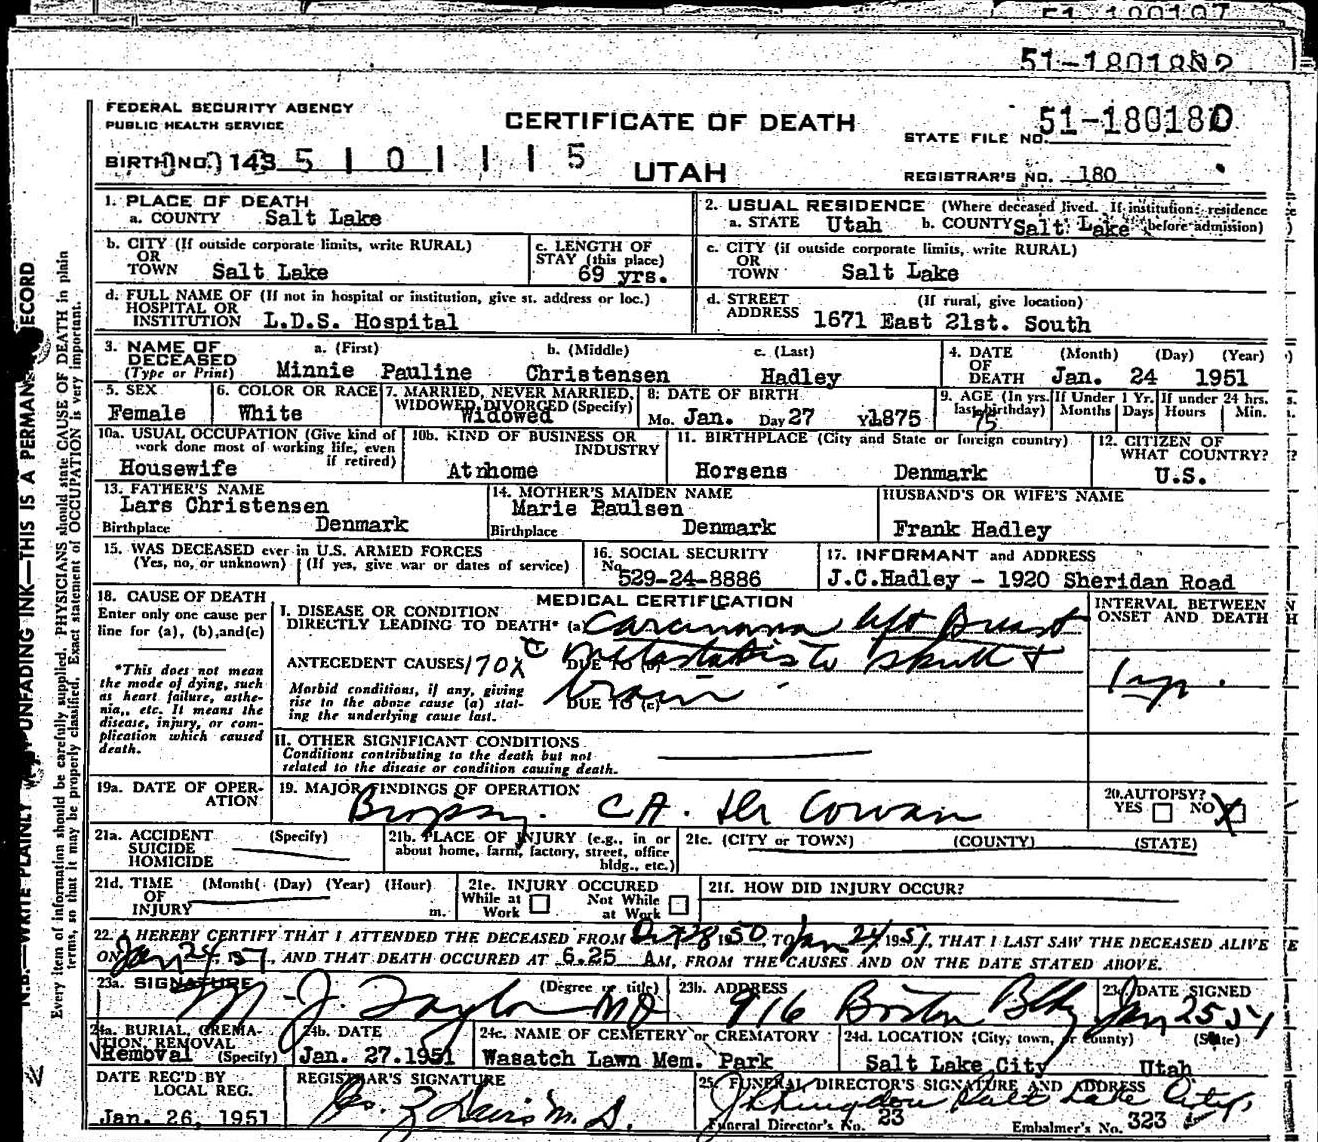 51-180180
FEDERAL SECURITY AGENCY
PUBLIC HEALTH SERVICE
CERTIFICATE OF DEATH
STATE FILE NO. 51-180180
BIRTH NO. 143 5 1 0 1 1 1 5
UTAH
REGISTRAR'S NO. 180
1. PLACE OF DEATH
a. COUNTY Salt Lake
2. USUAL RESIDENCE (Where deceased lived. If institution: residence before admission)
a. STATE Utah b. COUNTY Salt Lake
b. CITY (If outside corporate limits, write RURAL)
OR
TOWN Salt Lake
c. LENGTH OF STAY (this place)
69 yrs.
c. CITY (if outside corporate limits, write RURAL)
OR
TOWN Salt Lake
d. FULL NAME OF (If not in hospital or institution, give st. address or loc.)
HOSPITAL OR
INSTITUTION L.D.S. Hospital
d. STREET ADDRESS (If rural, give location)
1671 East 21st. South
3. NAME OF DECEASED
(Type or Print)
a. (First) b. (Middle) c. (Last)
Minnie Pauline Christensen Hadley
4. DATE OF DEATH (Month) (Day) (Year)
Jan. 24 1951
5. SEX
Female
6. COLOR OR RACE
White
7. MARRIED, NEVER MARRIED, WIDOWED, DIVORCED (Specify)
Widowed
8. DATE OF BIRTH
Mo. Jan. Day 27 Yr. 1875
9. AGE (In yrs. last birthday) 75
If Under 1 Yr. Months Days
If under 24 hrs. Hours Min.
10a. USUAL OCCUPATION (Give kind of work done most of working life, even if retired)
Housewife
10b. KIND OF BUSINESS OR INDUSTRY
Atnhome
11. BIRTHPLACE (City and State or foreign country)
Horsens Denmark
12. CITIZEN OF WHAT COUNTRY?
U.S.
13. FATHER'S NAME
Lars Christensen
Birthplace Denmark
14. MOTHER'S MAIDEN NAME
Marie Paulsen
Birthplace Denmark
HUSBAND'S OR WIFE'S NAME
Frank Hadley
15. WAS DECEASED ever in U.S. ARMED FORCES
(Yes, no, or unknown) (If yes, give war or dates of service)
16. SOCIAL SECURITY
No. 529-24-8886
17. INFORMANT and ADDRESS
J.C.Hadley - 1920 Sheridan Road
18. CAUSE OF DEATH
Enter only one cause per line for (a), (b), and (c)
*This does not mean the mode of dying, such as heart failure, asthenia, etc. It means the disease, injury, or complication which caused death.
MEDICAL CERTIFICATION
INTERVAL BETWEEN ONSET AND DEATH
I. DISEASE OR CONDITION
DIRECTLY LEADING TO DEATH* (a) Carcinoma left Breast
ANTECEDENT CAUSES 170X DUE TO (b) c metastasis to skull +
Morbid conditions, if any, giving rise to the above cause (a) stating the underlying cause last.
DUE TO (c) brain
1 yr.
II. OTHER SIGNIFICANT CONDITIONS
Conditions contributing to the death but not related to the disease or condition causing death.
19a. DATE OF OPERATION
19. MAJOR FINDINGS OF OPERATION
Biopsy. CA. Dr Cowan
20. AUTOPSY?
YES NO X
21a. ACCIDENT SUICIDE HOMICIDE (Specify)
21b. PLACE OF INJURY (e.g., in or about home, farm, factory, street, office bldg., etc.)
21c. (CITY or TOWN) (COUNTY) (STATE)
21d. TIME OF INJURY (Month) (Day) (Year) (Hour) m.
21e. INJURY OCCURED
While at Work Not While at Work
21f. HOW DID INJURY OCCUR?
22. I HEREBY CERTIFY THAT I ATTENDED THE DECEASED FROM 28 1950, TO Jan 24 1951, THAT I LAST SAW THE DECEASED ALIVE
ON Jan 24 1951, AND THAT DEATH OCCURED AT 6.25 AM, FROM THE CAUSES AND ON THE DATE STATED ABOVE.
23a. SIGNATURE (Degree or title)
M. J. Taylor MD
23b. ADDRESS
916 Boston Bldg
23c. DATE SIGNED
Jan 25 51
24a. BURIAL, CREMATION, REMOVAL (Specify)
Removal
24b. DATE
Jan. 27.1951
24c. NAME OF CEMETERY or CREMATORY
Wasatch Lawn Mem. Park
24d. LOCATION (City, town, or county) (State)
Salt Lake City Utah
DATE REC'D BY LOCAL REG.
Jan. 26, 1951
REGISTRAR'S SIGNATURE
25. FUNERAL DIRECTOR'S SIGNATURE AND ADDRESS
Salt Lake City,
Funeral Director's No. 23
Embalmer's No. 323
N.B.—WRITE PLAINLY UNFADING INK—THIS IS A PERMANENT RECORD
Every item of information should be carefully supplied. PHYSICIANS should state CAUSE OF DEATH in plain
terms, so that it may be properly classified. Exact statement of OCCUPATION is very important.